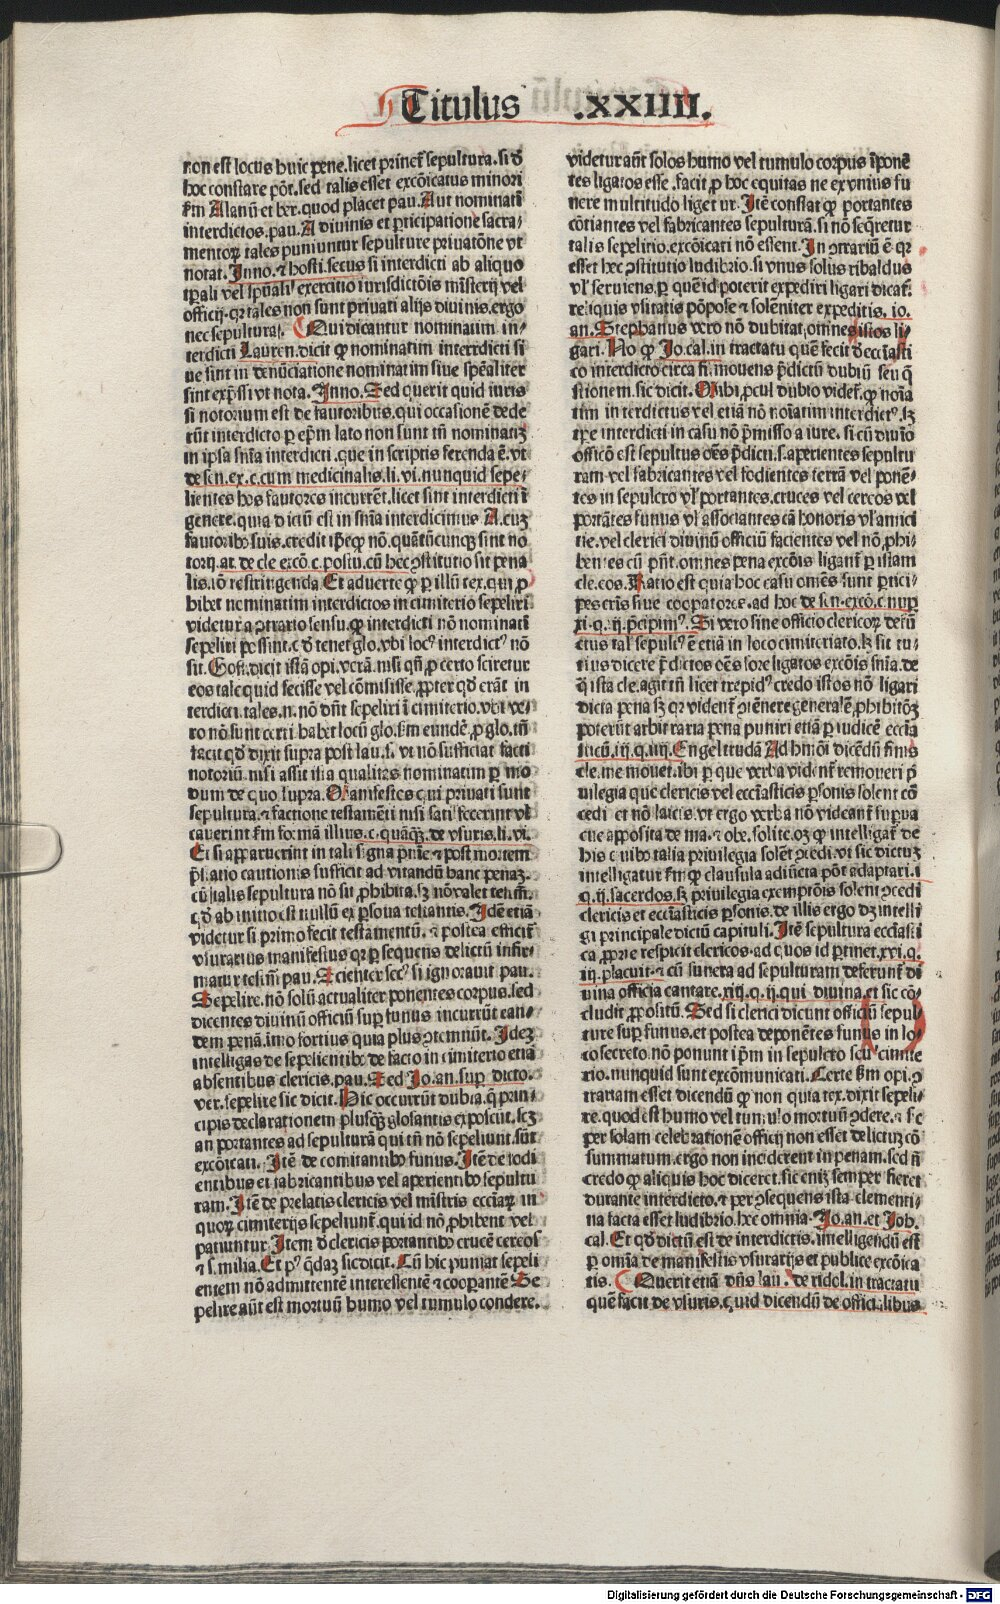 Titulus .XXIIII.
non est locus huic pene. licet prinet̄ sepultura. si ð
hoc constare põt. sed talis esset excõicatus minori
s̄m Alanũ et ber. quod placet pau. Aut nominati
interdictos. pau. A diuinis et ꝑticipatione sacra-
mentoꝝ tales puniuntur sepulture priuatõne vt
notat. Inno. ⁊ hosti. secus si interdicti ab aliquo
tꝑali vel spũali exercitio iurisdictõis mĩsterij vel
officij. qꝛ tales non sunt priuati alijs diuinis. ergo
nec sepultura. Qui dicantur nominatim in-
terdicti Lauren. dicit ꝙ nominatim interrdicti si
ue sint in denũciatione nominatim siue spẽaliter
sint exp̃ssi vt nota. Inno. Sed querit quid iuris
si notorium est de fautoribus. qui occasionẽ dede
rũt interdicto ꝑ ep̃m lato non sunt tñ nominatiȝ
in ipsa sñia interdicti. que in scriptis ferenda ẽ. vt
de sen. ex. c. cum medicinalis. li. vi. nunquid sepe-
lientes hos fautores incurrẽt. licet sint interdicti ĩ
genere. quia dictũ est in sñia interdicimus A. euȝ
fautoribꝰ suis. credit ip̄e ꝙ nõ. quãtũcunqȝ sint no
torij. at. de cle excõ. c. postu. cũ hec ꝯstitutio sit pena
lis. iõ restringenda. Et aduerte ꝙ ꝑ illũ tex. qui ꝓ
hibet nominatim interdictos in cimiterio sepeliri
videtur a ꝯtrario sensu. ꝙ interdicti nõ nominati
sepeliri possint. c ð tenet glo. vbi locꝰ interdictꝰ nõ
sit. Host. dicit istã opi. verã. nisi qñ ꝓ certo sciretur
eos tale quid fecisse vel cõmisisse. ꝓpter qð erãt in
terdicti. tales. n. nõ dñt sepeliri ĩ cimiterio. vbi ve-
ro nõ sunt certi habet locũ glo. s̄m eundẽ. ꝓ glo. tñ
facit qð dixit supra post lau. s. vt nõ sufficiat facti
notoriũ. nisi assit illa qualitas nominatim ꝑ mo
dum de quo supra. Manifestos qui priuati sunt
sepultura. ⁊ factione testamẽti nisi satisfecerint vl̛
cauerint s̄m formã illius. c. quãqȝ. de vsuris. li. vi.
Et si apparuerint in tali signa pñie. ⁊ post mortem
p̄statio cautionis sufficit ad vitandũ hanc penaȝ.
cũ talis sepultura nõ sit ꝓhibita. sȝ nõ valet testm̃.
qð ab initio est nullũ ex ꝑsona testantis. Idẽ etiã
videtur si primo fecit testamentũ. ⁊ postea efficit̄
vsurarius manifestus qꝛ ꝑ sequens delictũ infir-
matur testm̃ pau. Scienter secꝰ si ignorauit pau.
Sepelire. nõ solũ actualiter ponentes corpus. sed
dicentes diuinũ officiũ suꝑ funus incurrũt ean-
dem penã. imo fortius quia plus ꝯtemnũt. Ideȝ
intelligas de sepelientibꝰ de facto in cimiterio etiã
absentibus clericis. pau. Sed Jo. an. suꝑ dicto.
ver. sepelire sic dicit. Hic occurrũt dubia. q̄ prin-
cipis declarationem plusqȝ glosantis exposcũt. scȝ
an portantes ad sepulturã qui tñ nõ sepeliunt. sũt
excõicati. Itẽ de comitantibꝰ funus. Itẽ de fodi
entibus et fabricantibus vel aperientibꝰ sepultu
ram. Itẽ de prelatis clericis vel mĩstris eccĩaꝝ in
quoꝝ cimiterijs sepeliunt̄. qui id nõ ꝓhibent vel
patiuntur. Item ð clericis portantibꝰ crucẽ cereos
⁊ similia. Et pꝰ q̃daȝ sic dicit. Cũ hic puniat sepeli
entem nõ admittentẽ interessentẽ ⁊ cooꝑantẽ Se
pelire aũt est mortuũ humo vel tumulo condere.
videtur aũt solos humo vel tumulo corpus ĩponẽ
tes ligatos esse. facit ꝓ hoc equitas ne ex vnius fu
nere multitudo liget ur. Itẽ constat ꝙ portantes
cõtiantes vel fabricantes sepulturã. si nõ seq̄retur
talis sepelitio. excõicati nõ essent. In ꝯtrariũ ẽ qꝛ
esset hec ꝯstitutio ludibrio. si vnus solus ribaldus
vl̛ seruiens. ꝑ quẽ id poterit expediri ligari dicat̄.
reliquis vsitatis põpose ⁊ solẽniter expeditis. io.
an. Stephanus vero nõ dubitat. omnes istos li-
gari. No ꝙ Jo. cal. in tractatu quẽ fecit ð eccĩasti
co interdicto circa fi. mouens p̄dictũ dubiũ seu q̄
stionem. sic dicit. Mihi ꝓcul dubio videt̄. ꝙ noĩa
tim interdictus vel etiã nõ noĩatim interdictꝰ. sȝ
tꝑe interdicti in casu nõ ꝑmisso a iure. si cũ diuĩo
officõ est sepultus oẽs p̄dicti. s. aperientes sepultu
ram vel fabricantes vel fodientes terrã vel ponẽ-
tes in sepulcro vl̛ portantes. cruces vel cereos vel
portãtes funus vl̛ associantes cã honoris vl̛ amici
tie. vel clerici diuinũ officiũ facientes vel nõ ꝓhi-
bentes cũ pñt. omnes pena excõis ligant̄ ꝑ istam
cle. eos. Ratio est quia hoc casu omẽs sunt ꝑtici-
pes cris siue cooꝑatores. ad hoc de sen. excõ. c. nuꝑ
xi. q. iij. p̄cipimꝰ. Si vero sine officio clericoꝝ defũ
ctus tal̛ sepultꝰ ẽ etiã in loco cimiteriato. lȝ sit tu-
tius dicere p̄dictos oẽs fore ligatos excõis sñia. de
q̃ ista cle. agit tñ licet trepidꝰ credo istos nõ ligari
dicta pena sȝ qꝛ vident̄ ꝯtẽnere generalẽ ꝓhibitõȝ
poterũt arbitraria pena puniri etiã ꝑ iudicẽ eccĩa
sticũ. iij. q. iiij. Engeltrudã Ad hm̃oi dicẽdũ firmis
cle. me mouet. ibi ꝑ que verba vident̄ remoueri p̄
uilegia que clericis vel eccĩasticis ꝑsonis solent cõ
cedi et nõ laicis. vt ergo verba nõ videant̄ suꝑua
cue apposita de ma. ⁊ obe. solite. oȝ ꝙ intelligat̄ de
his quibꝰ talia priuilegia solẽt ꝯcedi. vt sic dictuȝ
intelligatur s̄m ꝙ clausula adiũcta põt adaptari. i
q. ij. sacerdos. sȝ priuilegia exemptõis solent ꝯcedi
clericis et eccĩasticis ꝑsonis. de illis ergo dȝ intelli
gi principale dictũ capituli. Itẽ sepultura eccĩasti
ca ꝓprie respicit clericos. ad quos id ꝑtinet. xvi. q.
iij. placuit. ⁊ cũ funera ad sepulturam deferunt̄ di
uina officia cantare. xiij. q. ij. qui diuina. et sic cõ-
cludit ꝓpositũ. Sed si clerici dicunt officiũ sepul-
ture suꝑ funus. et postea deponẽtes funus in lo-
co secreto. nõ ponunt ip̃m in sepulcro seu cimite
rio. nunquid sunt excõmunicati. Certe s̄m opi. ꝯ
trariam esset dicendũ ꝙ non quia tex. dixit sepeli-
re. quod est humo vel tumulo mortuũ ꝯdere. ⁊ sic
per solam celebrationẽ officij non esset delictuȝ cõ
summatum. ergo non inciderent in penam. sed nõ
credo ꝙ aliquis hoc diceret. sic enĩȝ semper fieret
durante interdicto. ⁊ per ꝯsequens ista clementi-
na facta esset ludibrio. hec omnia. Jo. an. et Joh.
cal. Et qð dictũ est de interdictis. intelligendũ est
ꝑ omnia de manifestis vsurarijs et publice excõica
tis. Querit etiã dñs lau. de ridol. in tractatu
quẽ facit de vsuris. quid dicendũ de officialibus
Digitalisierung gefördert durch die Deutsche Forschungsgemeinschaft - DFG